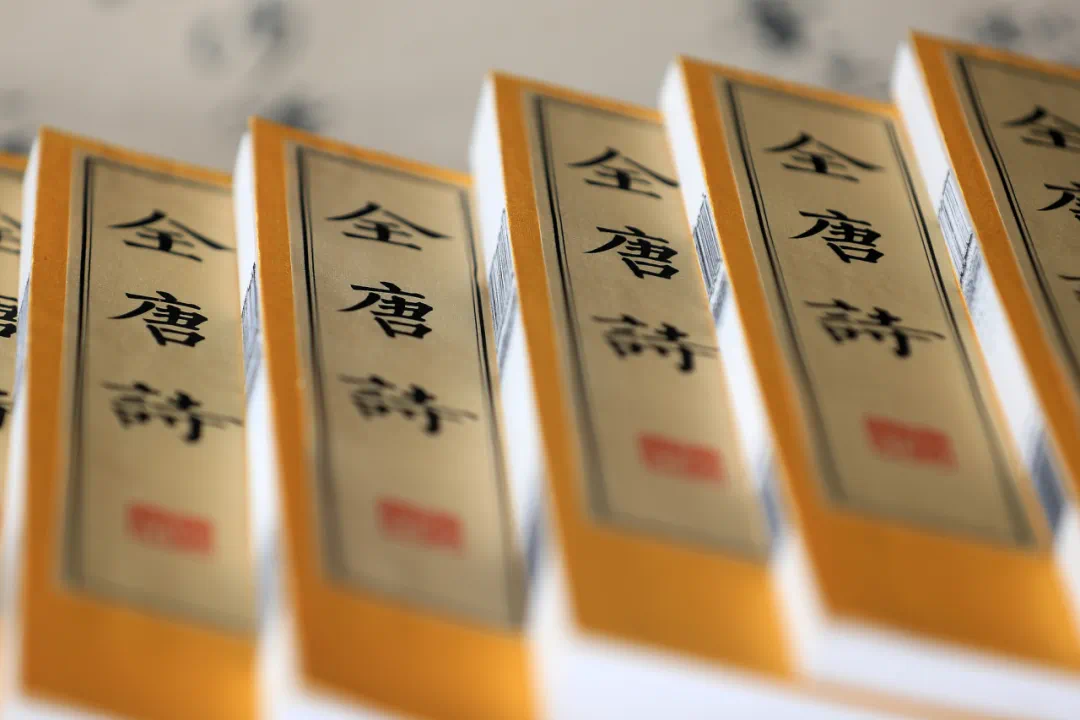 全唐詩
全唐詩
全唐詩
全唐詩
全唐